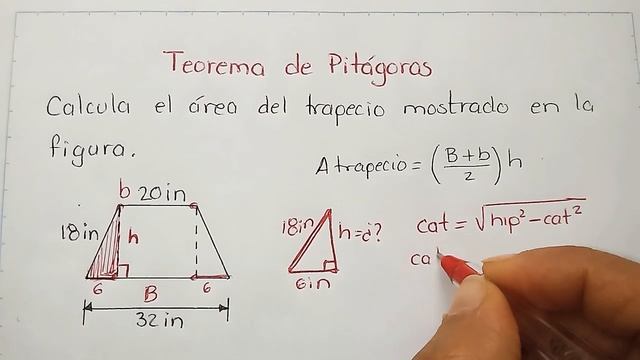 Teorema de Pitágoras
Calcula el área del trapecio mostrado en la
figura.
A trapecio = (B+b/2) h
b 20 in
18 in
h
6
B
6
32 in
18 in
h=¿?
6 in
cat = √hip² - cat²
ca